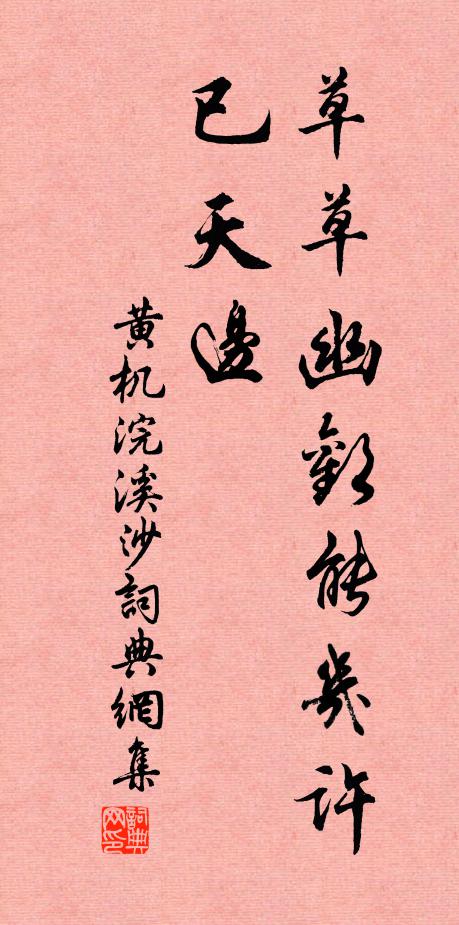 草草幽歡能幾許
已天邊
黄机浣溪沙詞典網集
詞典网印